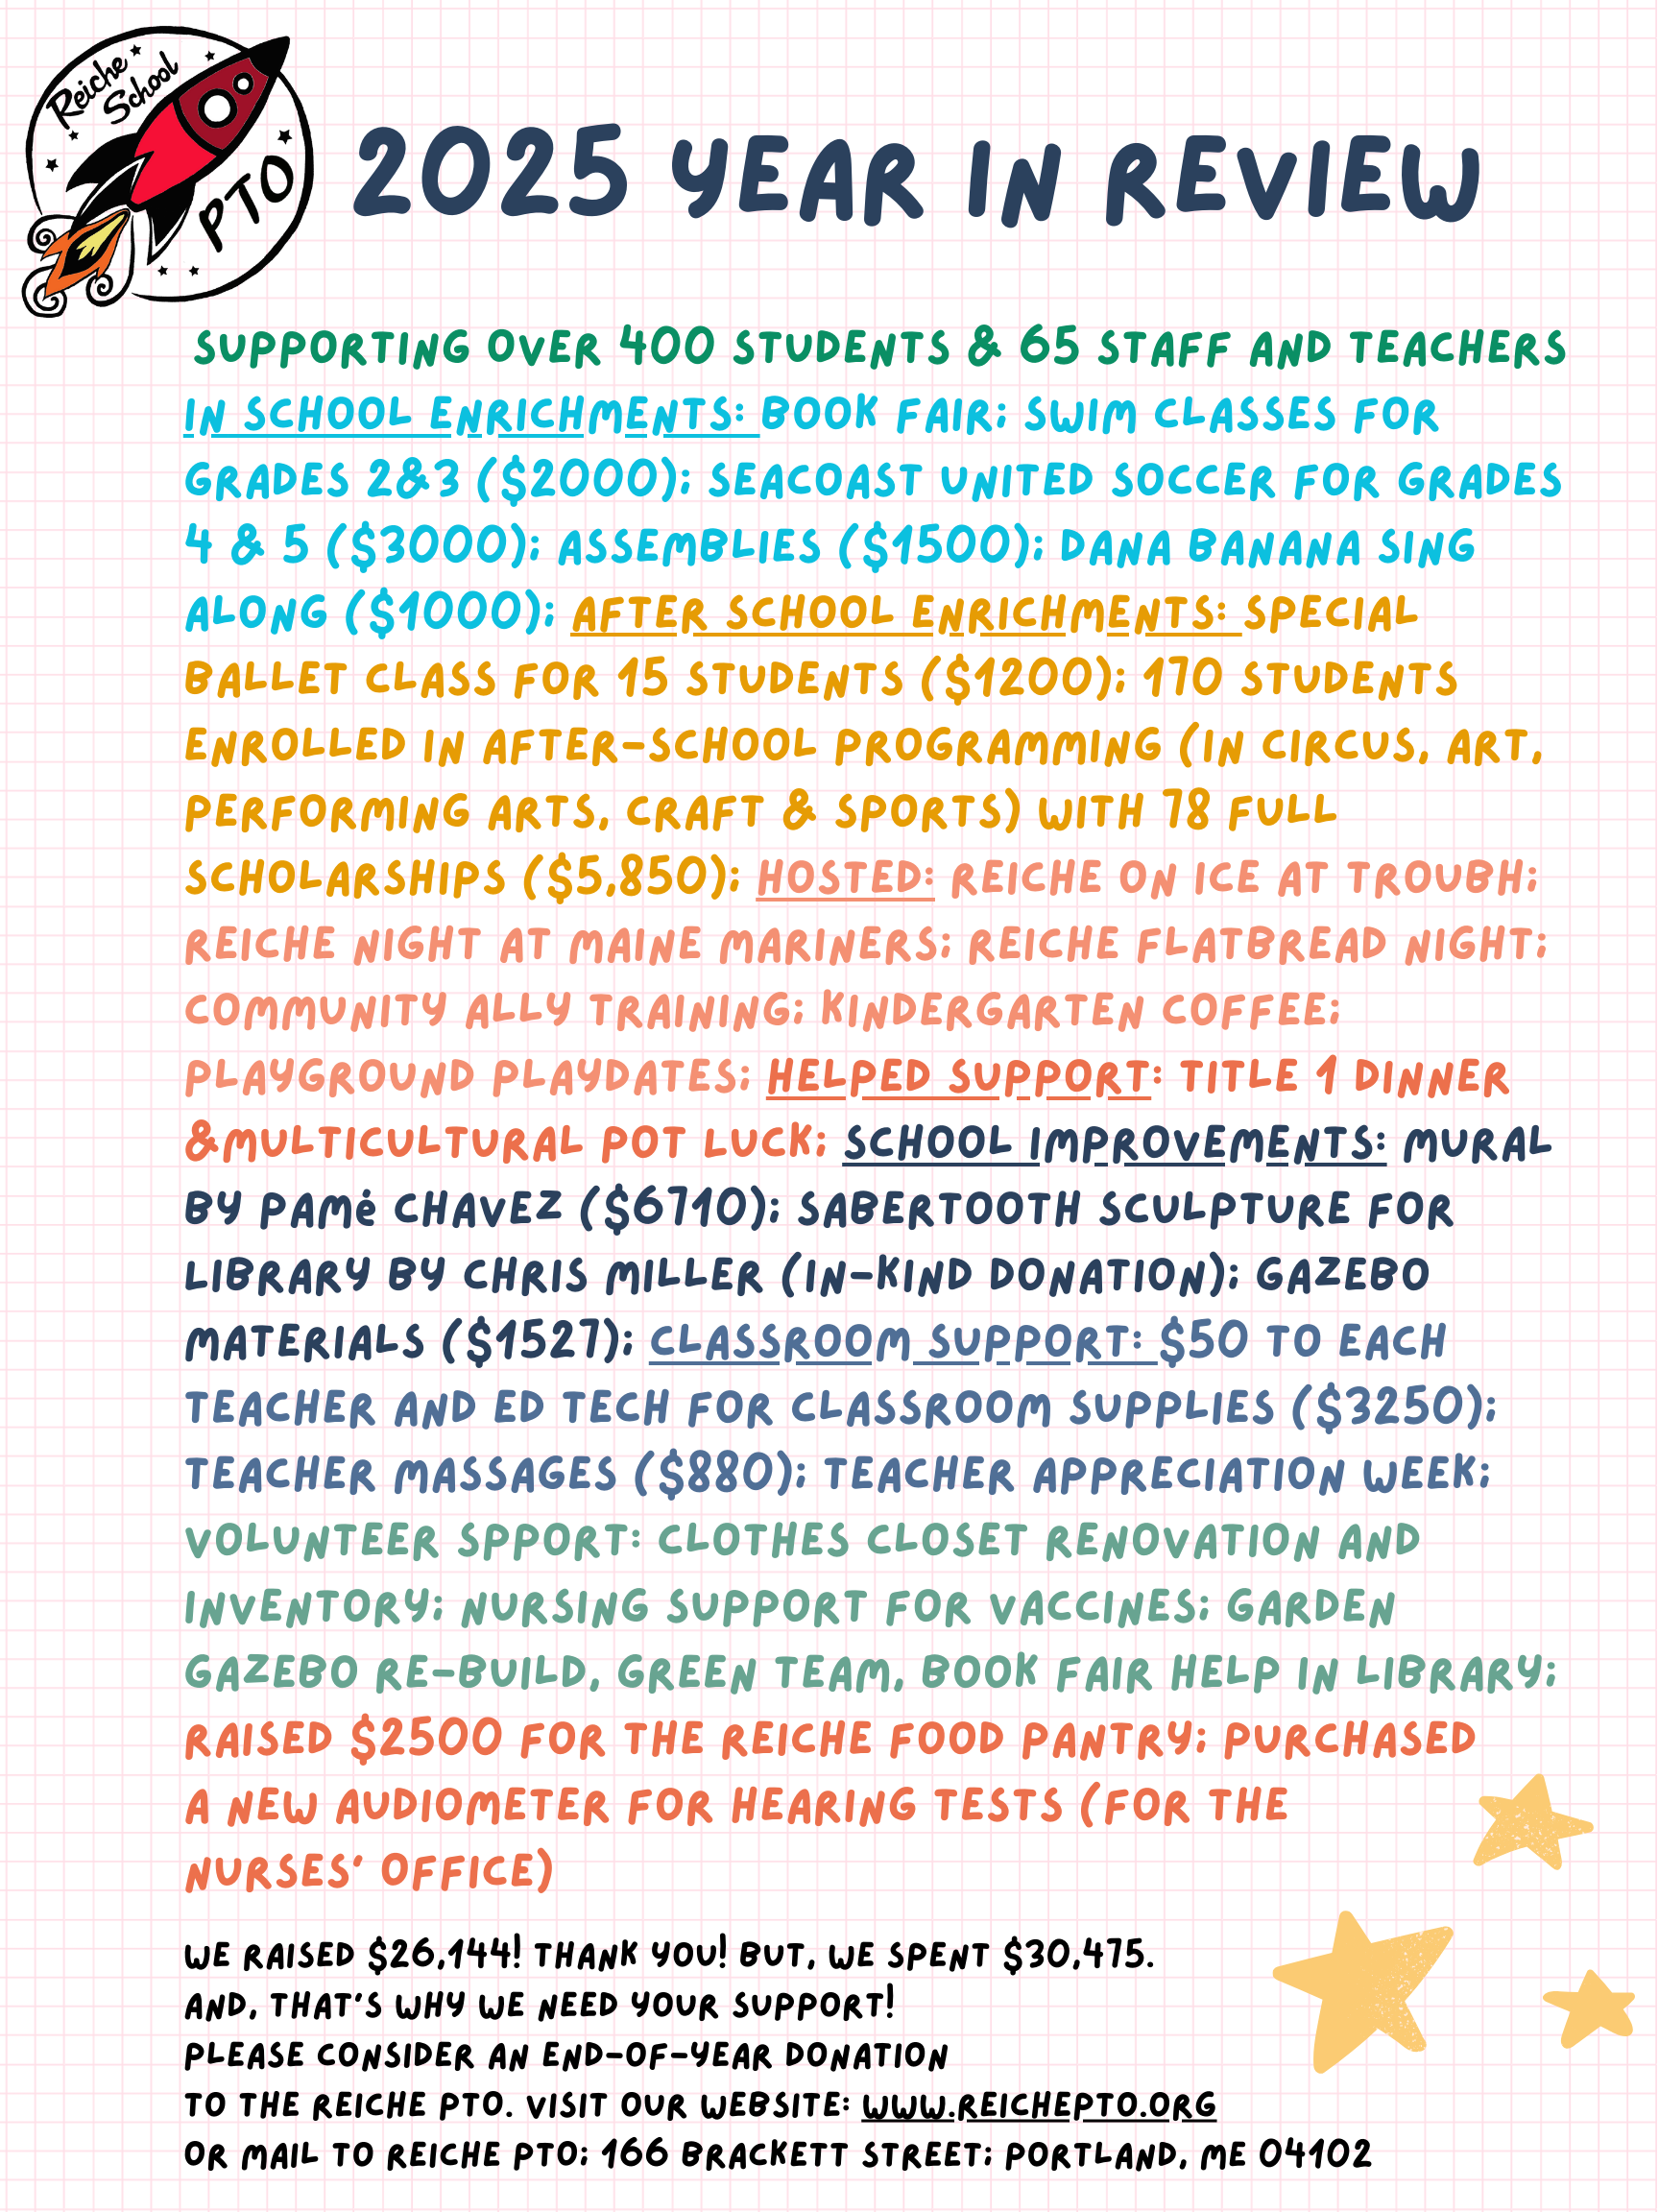 Reiche School
PTO
2025 YEAR IN REVIEW
SUPPORTING OVER 400 STUDENTS & 65 STAFF AND TEACHERS
IN SCHOOL ENRICHMENTS: BOOK FAIR; SWIM CLASSES FOR
GRADES 2&3 ($2000); SEACOAST UNITED SOCCER FOR GRADES
4 & 5 ($3000); ASSEMBLIES ($1500); DANA BANANA SING
ALONG ($1000); AFTER SCHOOL ENRICHMENTS: SPECIAL
BALLET CLASS FOR 15 STUDENTS ($1200); 170 STUDENTS
ENROLLED IN AFTER-SCHOOL PROGRAMMING (IN CIRCUS, ART,
PERFORMING ARTS, CRAFT & SPORTS) WITH 78 FULL
SCHOLARSHIPS ($5,850); HOSTED: REICHE ON ICE AT TROUBH;
REICHE NIGHT AT MAINE MARINERS; REICHE FLATBREAD NIGHT;
COMMUNITY ALLY TRAINING; KINDERGARTEN COFFEE;
PLAYGROUND PLAYDATES; HELPED SUPPORT: TITLE 1 DINNER
&MULTICULTURAL POT LUCK; SCHOOL IMPROVEMENTS: MURAL
BY PAMé CHAVEZ ($6710); SABERTOOTH SCULPTURE FOR
LIBRARY BY CHRIS MILLER (IN-KIND DONATION); GAZEBO
MATERIALS ($1527); CLASSROOM SUPPORT: $50 TO EACH
TEACHER AND ED TECH FOR CLASSROOM SUPPLIES ($3250);
TEACHER MASSAGES ($880); TEACHER APPRECIATION WEEK;
VOLUNTEER SPPORT: CLOTHES CLOSET RENOVATION AND
INVENTORY; NURSING SUPPORT FOR VACCINES; GARDEN
GAZEBO RE-BUILD, GREEN TEAM, BOOK FAIR HELP IN LIBRARY;
RAISED $2500 FOR THE REICHE FOOD PANTRY; PURCHASED
A NEW AUDIOMETER FOR HEARING TESTS (FOR THE
NURSES' OFFICE)
WE RAISED $26,144! THANK YOU! BUT, WE SPENT $30,475.
AND, THAT'S WHY WE NEED YOUR SUPPORT!
PLEASE CONSIDER AN END-OF-YEAR DONATION
TO THE REICHE PTO. VISIT OUR WEBSITE: WWW.REICHEPTO.ORG
OR MAIL TO REICHE PTO; 166 BRACKETT STREET; PORTLAND, ME 04102